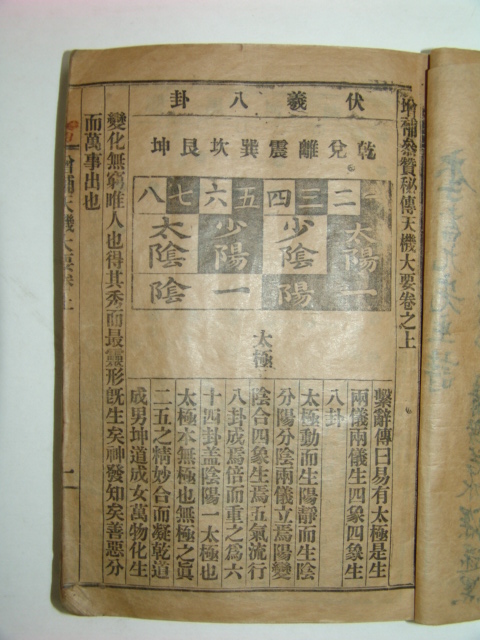 增補參贊秘傳天機大要卷之上
伏羲八卦
乾兌離震巽坎艮坤
一二三四五六七八
太陽少陰少陽太陰
一陽一陰
太極
繫辭傳曰易有太極是生
兩儀兩儀生四象四象生
八卦
太極動而生陽靜而生陰
分陽分陰兩儀立焉陽變
陰合四象生焉五氣流行
八卦成焉倍而重之爲六
十四卦盖陰陽一太極也
太極本無極也無極之眞
二五之精妙合而凝乾道
成男坤道成女萬物化生
變化無窮唯人也得其秀而最靈形旣生矣神發知矣善惡分
而萬事出也
增補天機大要卷上
一